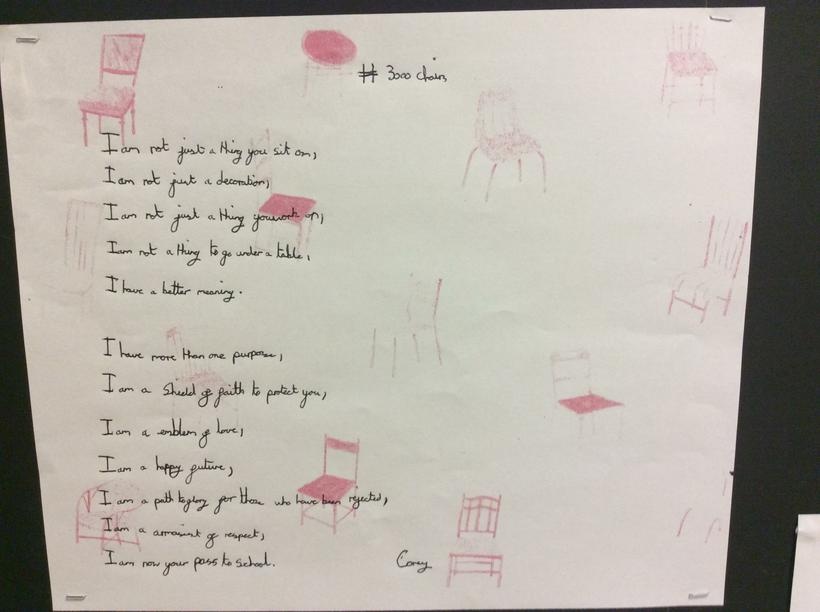 # 3000 chairs
I am not just a thing you sit on,
I am not just a decoration,
I am not just a thing you work on,
I am not a thing to go under a table,
I have a better meaning.
I have more than one purpose,
I am a Shield of faith to protect you,
I am a emblem of love,
I am a happy future,
I am a path to glory for those who have been rejected,
I am a of respect,
I am now your pass to school.
Corey